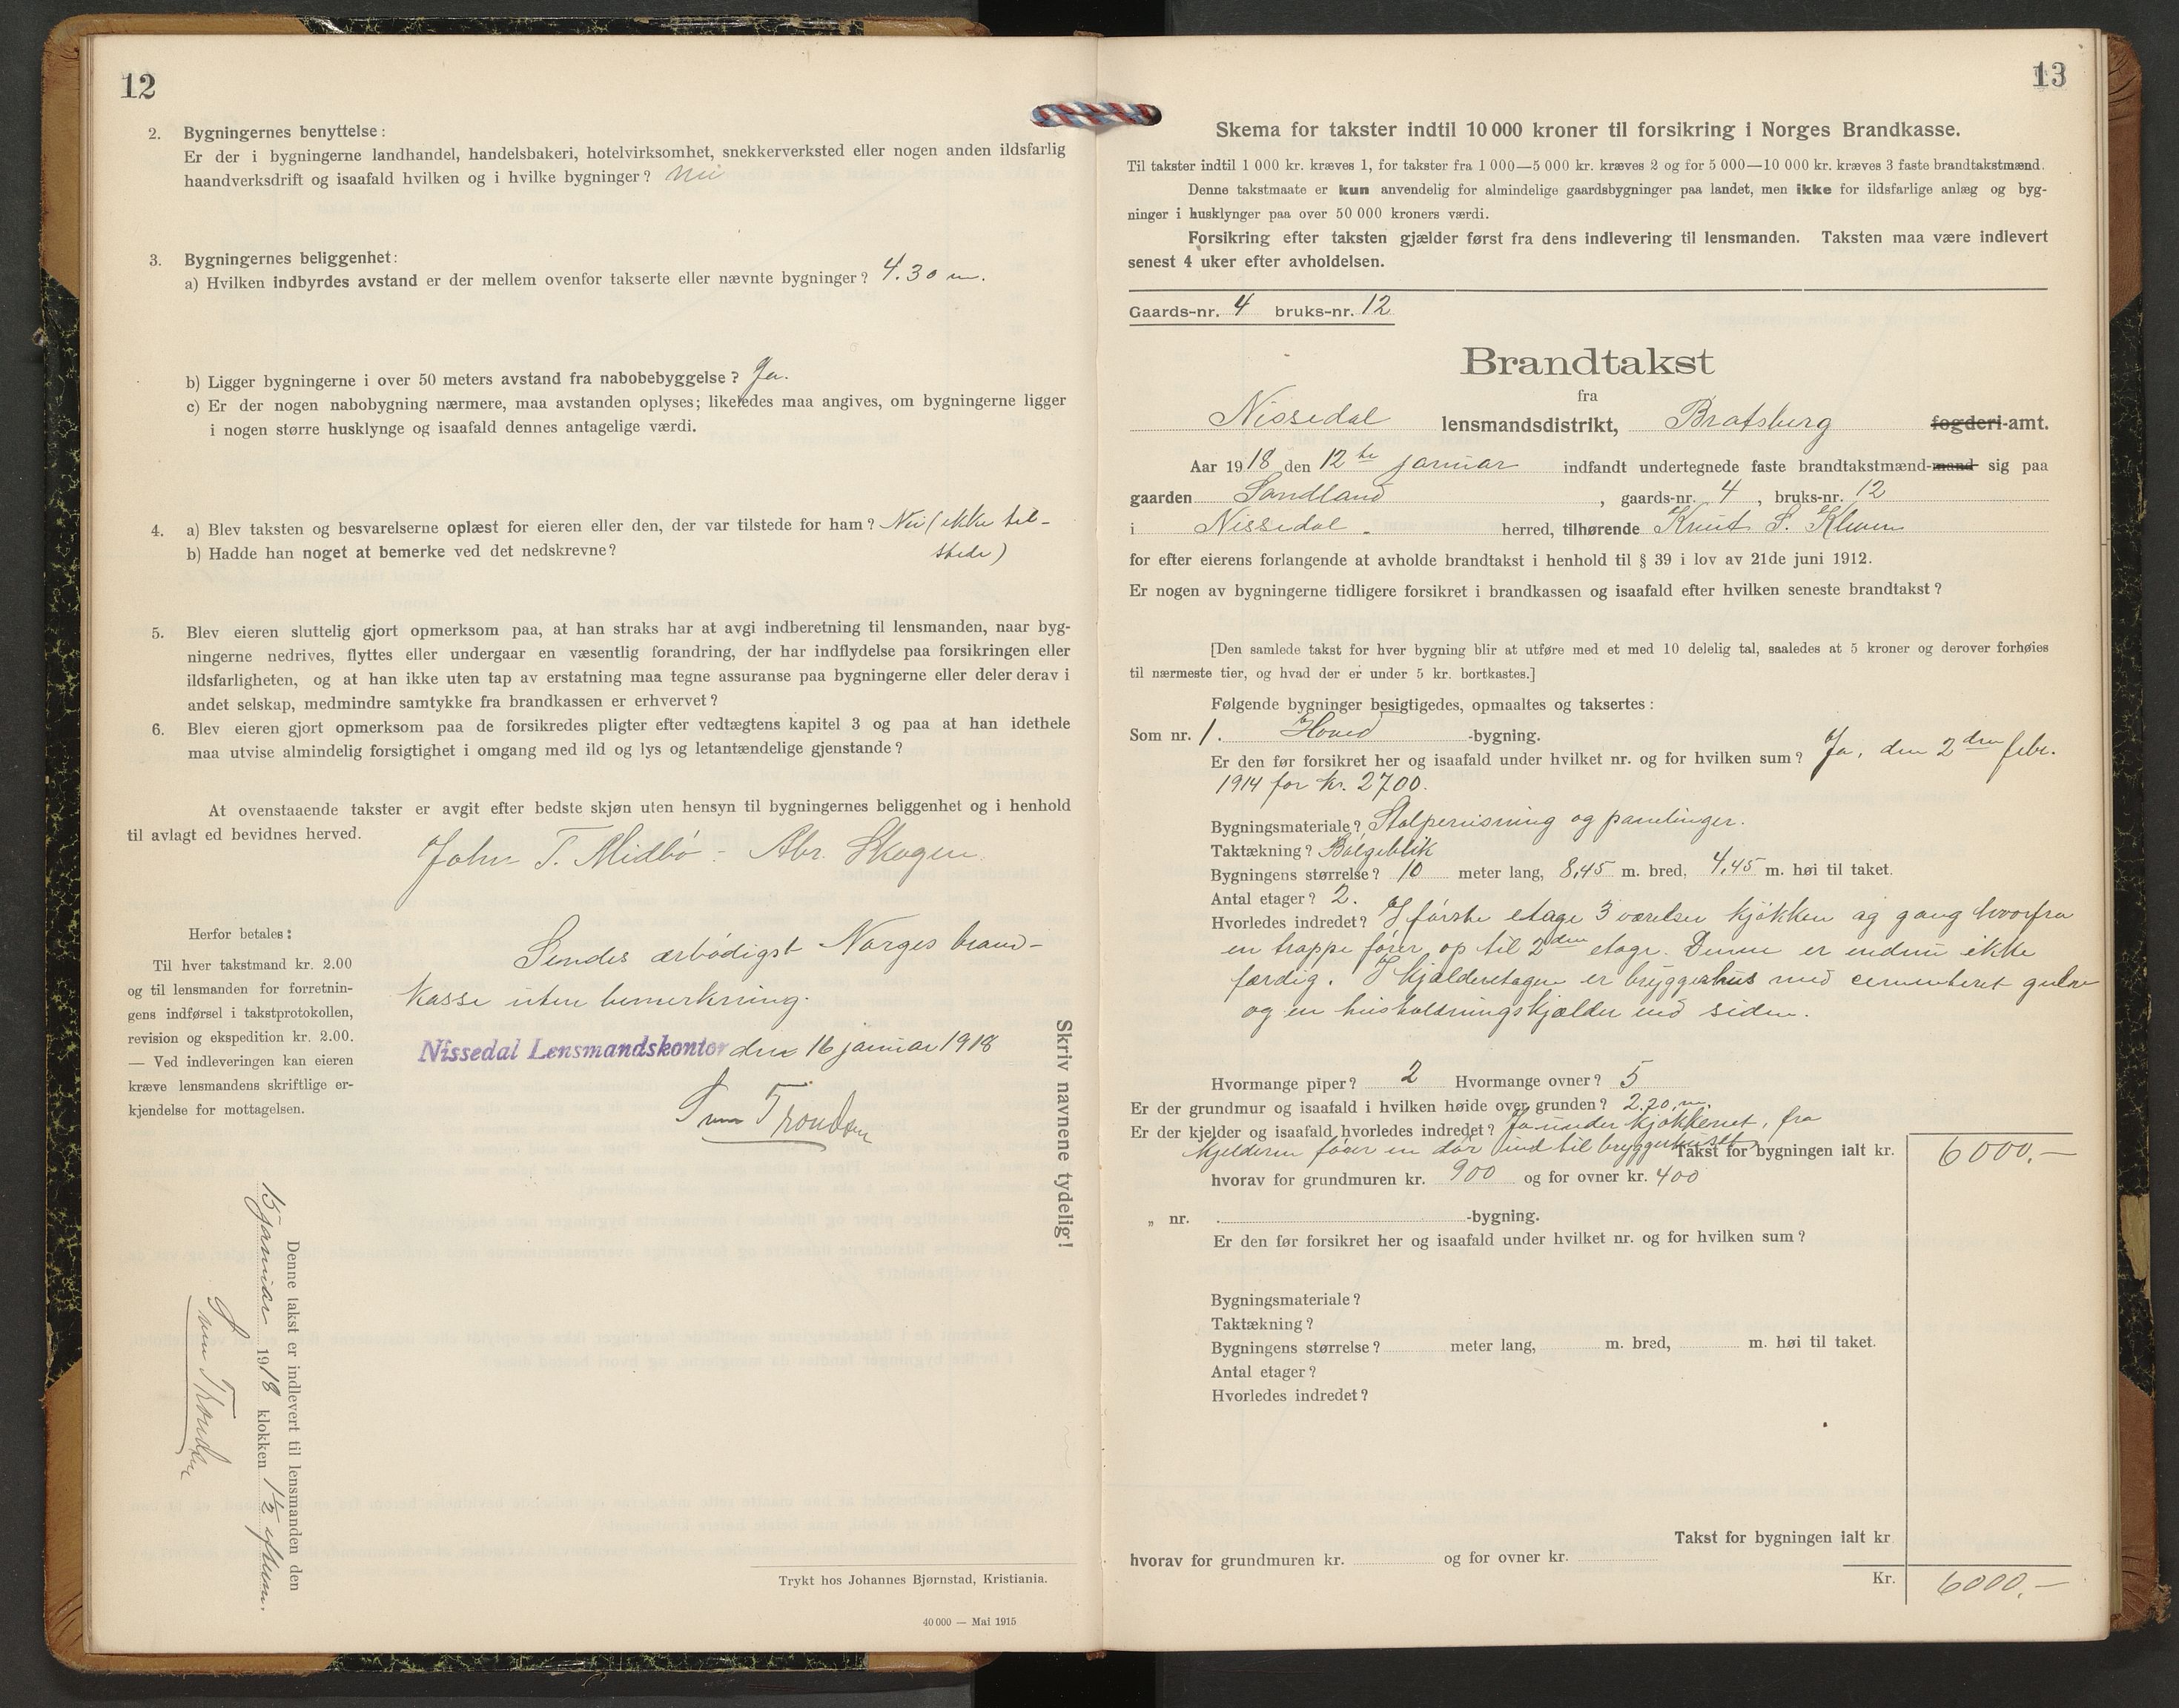 12
2. Bygningernes benyttelse:
Er der i bygningerne landhandel, handelsbakeri, hotelvirksomhet, snekkerverksted eller nogen anden ildsfarlig
haandverksdrift og isaafald hvilken og i hvilke bygninger? Nei
3. Bygningernes beliggenhet:
a) Hvilken indbyrdes avstand er der mellem ovenfor takserte eller nævnte bygninger? 4.30 m.
b) Ligger bygningerne i over 50 meters avstand fra nabobebyggelse? Ja.
c) Er der nogen nabobygning nærmere, maa avstanden oplyses; likeledes maa angives, om bygningerne ligger
i nogen større husklynge og isaafald dennes antagelige værdi.
4. a) Blev taksten og besvarelserne oplæst for eieren eller den, der var tilstede for ham? Nei (ikke til-
b) Hadde han noget at bemerke ved det nedskrevne? stede)
5. Blev eieren sluttelig gjort opmerksom paa, at han straks har at avgi indberetning til lensmanden, naar byg-
ningerne nedrives, flyttes eller undergaar en væsentlig forandring, der har indflydelse paa forsikringen eller
ildsfarligheten, og at han ikke uten tap av erstatning maa tegne assuranse paa bygningerne eller deler derav i
andet selskap, medmindre samtykke fra brandkassen er erhvervet?
6. Blev eieren gjort opmerksom paa de forsikredes pligter efter vedtægtens kapitel 3 og paa at han idethele
maa utvise almindelig forsigtighet i omgang med ild og lys og letantændelige gjenstande?
At ovenstaaende takster er avgit efter bedste skjøn uten hensyn til bygningernes beliggenhet og i henhold
til avlagt ed bevidnes herved.
John T. Midbö - Abr. Skogen
Herfor betales:
Til hver takstmand kr. 2.00
og til lensmanden for forretnin-
gens indførsel i takstprotokollen,
revision og ekspedition kr. 2.00.
— Ved indleveringen kan eieren
kræve lensmandens skriftlige er-
kjendelse for mottagelsen.
Sendes ærbödigst Norges brand-
kasse uten bemerkning.
Nissedal Lensmandskontor den 16 januar 1918
Trondsen
Skriv navnene tydelig!
Denne takst er indlevert til lensmanden den
15 januar 1918 klokken 1½ efterm.
Trondsen
Trykt hos Johannes Bjørnstad, Kristiania.
40 000 — Mai 1915
13
Skema for takster indtil 10 000 kroner til forsikring i Norges Brandkasse.
Til takster indtil 1 000 kr. kræves 1, for takster fra 1 000—5 000 kr. kræves 2 og for 5 000—10 000 kr. kræves 3 faste brandtakstmænd.
Denne takstmaate er kun anvendelig for almindelige gaardsbygninger paa landet, men ikke for ildsfarlige anlæg og byg-
ninger i husklynger paa over 50 000 kroners værdi.
Forsikring efter taksten gjælder først fra dens indlevering til lensmanden. Taksten maa være indlevert
senest 4 uker efter avholdelsen.
Gaards-nr. 4 bruks-nr. 12
Brandtakst
fra
Nissedal lensmandsdistrikt, Bratsberg fogderi-amt.
Aar 1918 den 12te januar indfandt undertegnede faste brandtakstmænd-mand sig paa
gaarden Sandland, gaards-nr. 4, bruks-nr. 12
i Nissedal herred, tilhørende Knut S. Kleven
for efter eierens forlangende at avholde brandtakst i henhold til § 39 i lov av 21de juni 1912.
Er nogen av bygningerne tidligere forsikret i brandkassen og isaafald efter hvilken seneste brandtakst?
[Den samlede takst for hver bygning blir at utføre med et med 10 delelig tal, saaledes at 5 kroner og derover forhøies
til nærmeste tier, og hvad der er under 5 kr. bortkastes.]
Følgende bygninger besigtigedes, opmaaltes og taksertes:
Som nr. 1. Hoved -bygning.
Er den før forsikret her og isaafald under hvilket nr. og for hvilken sum? Ja, den 2den febr.
1914 for kr. 2700.
Bygningsmateriale? Stolpereisning og panelinger.
Taktækning? Bölgeblik
Bygningens størrelse? 10 meter lang, 8,45 m. bred, 4,45 m. høi til taket.
Antal etager? 2.
Hvorledes indredet? I förste etage 3 værelser kjökken og gang hvorfra
en trappe förer op til 2den etage. Denne er endnu ikke
færdig. I kjælderetagen er bryggerhus med cementeret gulv
og en husholdningskjælder ved siden.
Hvormange piper? 2 Hvormange ovner? 5
Er der grundmur og isaafald i hvilken høide over grunden? 2,20 m.
Er der kjelder og isaafald hvorledes indredet? Ja under kjökkenet, fra
kjelderen förer en dör ind til bryggerhuset
Takst for bygningen ialt kr. 6000,—
hvorav for grundmuren kr. 900 og for ovner kr. 400
„ nr. . -bygning.
Er den før forsikret her og isaafald under hvilket nr. og for hvilken sum?
Bygningsmateriale?
Taktækning?
Bygningens størrelse? meter lang, m. bred, m. høi til taket.
Antal etager?
Hvorledes indredet?
Takst for bygningen ialt kr.
hvorav for grundmuren kr. og for ovner kr.
Kr. 6000,—